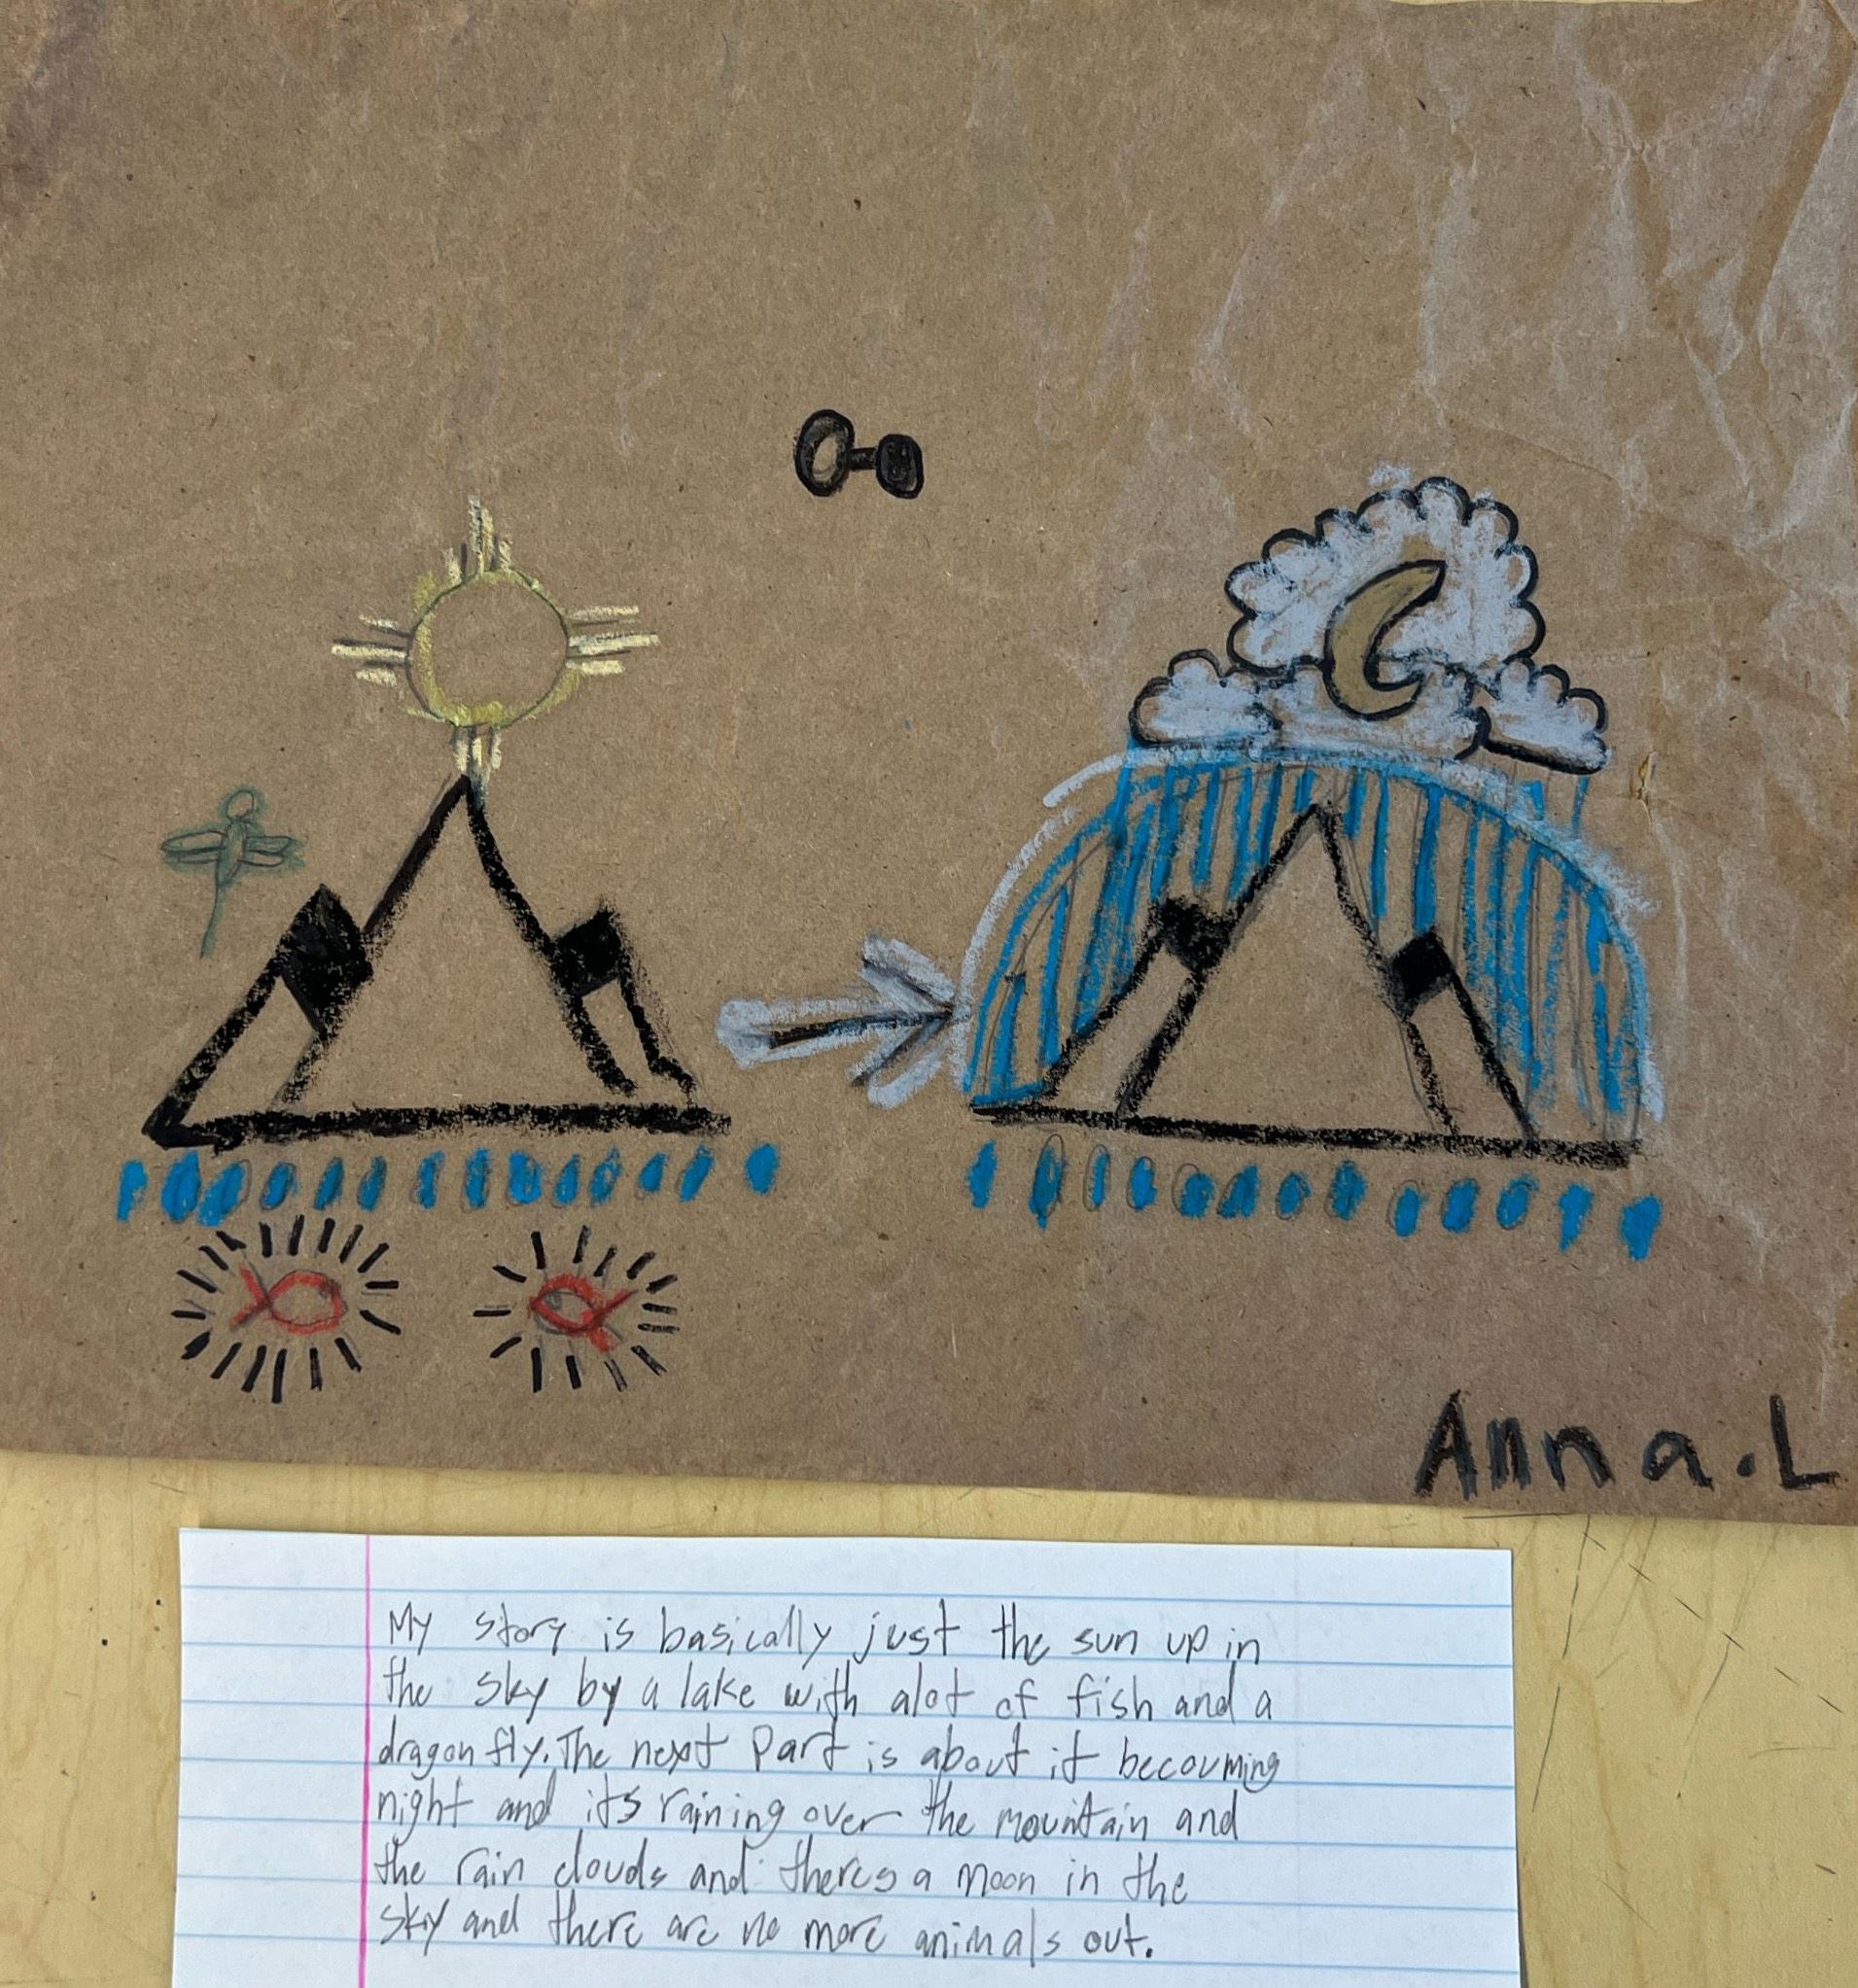 Anna.L
My story is basically just the sun up in
the sky by a lake with alot of fish and a
dragon fly. The next Part is about it becouming
night and its raining over the mountain and
the rain clouds and theres a moon in the
sky and there are no more animals out.